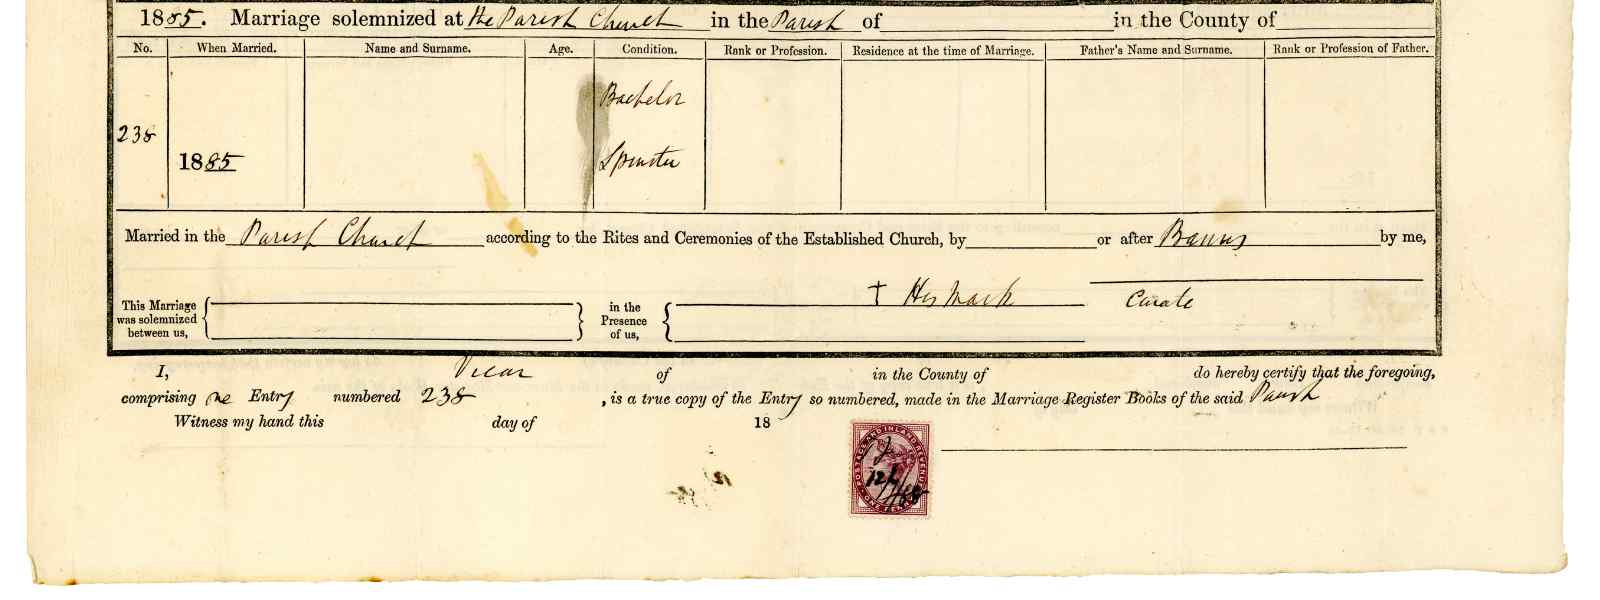 1885. Marriage solemnized at the Parish Church in the Parish of in the County of
No. When Married. Name and Surname. Age. Condition. Rank or Profession. Residence at the time of Marriage. Father's Name and Surname. Rank or Profession of Father.
Bachelor
238
1885 Spinster
Married in the Parish Church according to the Rites and Ceremonies of the Established Church, by or after Banns by me,
† Her Mark
This Marriage was solemnized between us, in the Presence of us, Curate
I, Vicar of in the County of do hereby certify that the foregoing,
comprising one Entry numbered 238 , is a true copy of the Entry so numbered, made in the Marriage Register Books of the said Parish
Witness my hand this day of 18
POSTAGE AND INLAND REVENUE
ONE PENNY